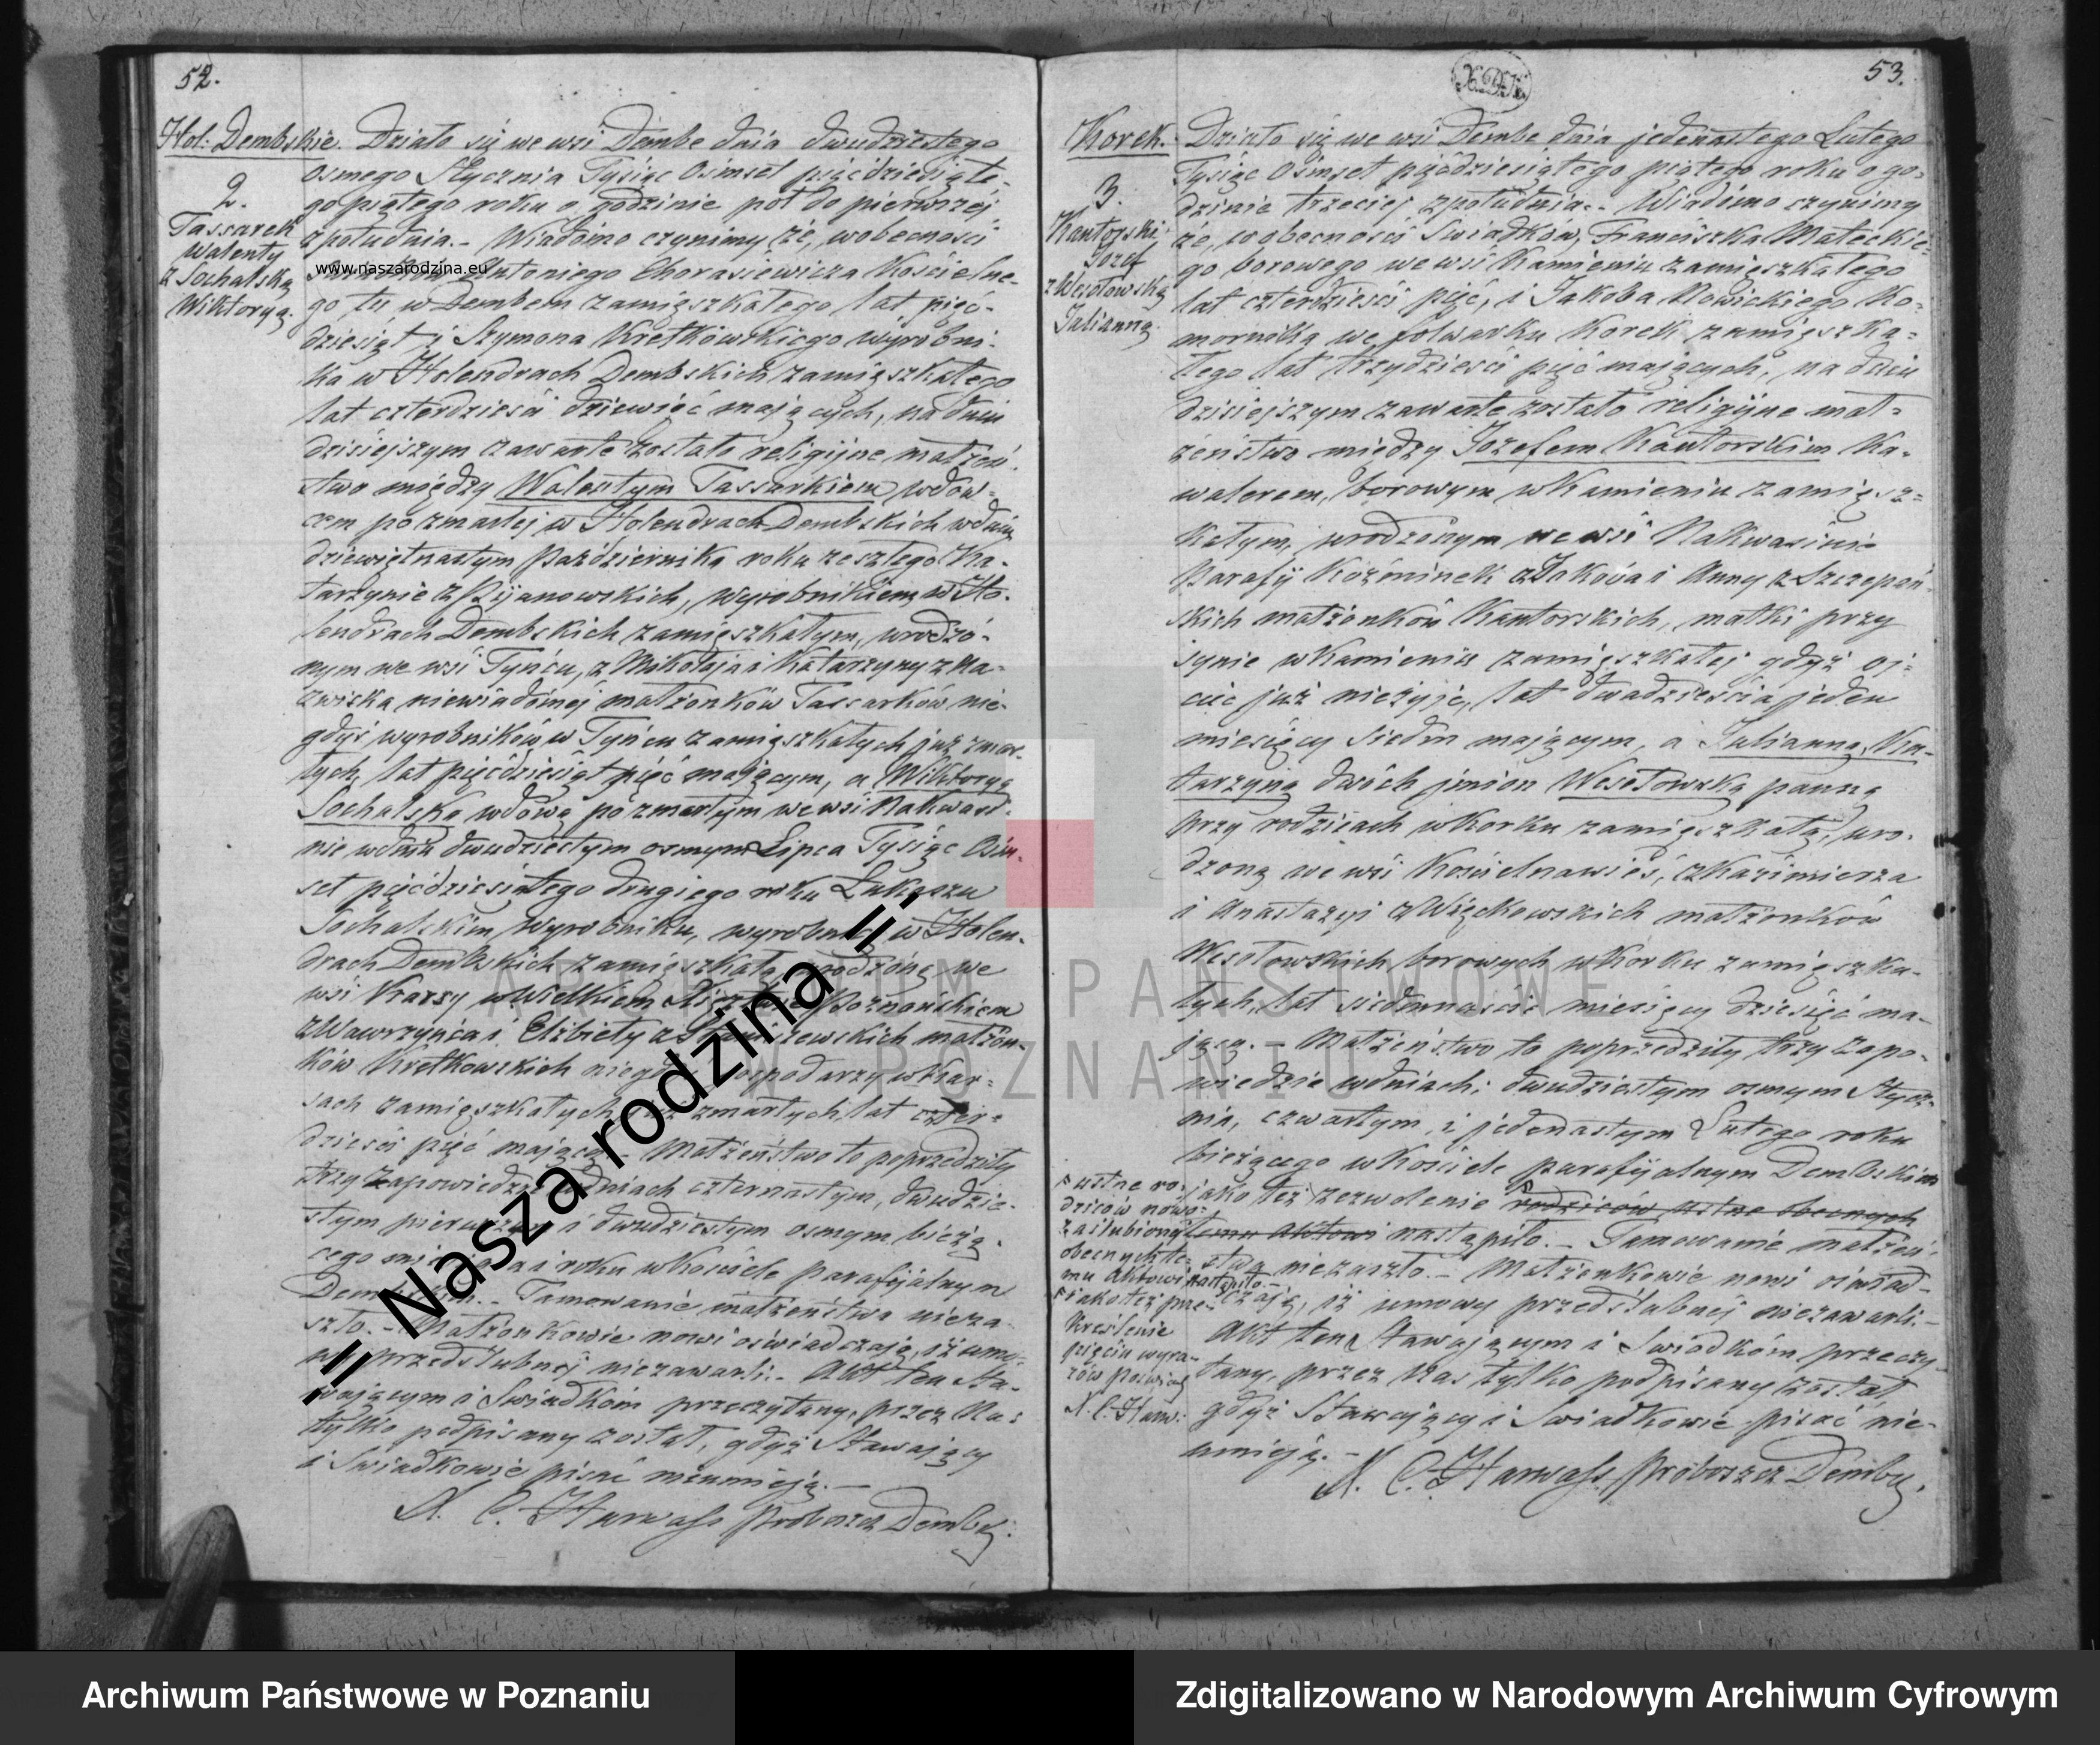 52.
Hol: Dembskie.
2.
Tassarek
Walenty
z Sochalską
Wiktoryą.
Działo się we wsi Dembe dnia dwudziestego
osmego Stycznia Tysiąc Ośmset pięćdziesiąte-
go piątego roku o godzinie pół do pierwszej
z południa.- Wiadomo czynimy że, wobecności
www.naszarodzina.eu
Swiadków Antoniego Chorasiewicza Kościelne-
go tu w Dembem zamięszkałego lat pięć-
dziesiąt i Szymona Kretkowskiego wyrobni-
ka w Holendrach Dembskich zamięszkałego
lat czterdzieści dziewięć mających, na dniu
dzisiejszym zawarte zostało religijne małżeń-
stwo między Walentym Tassarkiem wdow-
cem po zmarłej w Holendrach Dembskich w dniu
dziewiętnastym Października roku zeszłego Ka-
tarzynie z Kijanowskich, wyrobnikiem w Ho-
lendrach Dembskich zamięszkałym, urodzo-
nym we wsi Tyńcu, z Mikołaja i Katarzyny z na-
zwiska niewiadomej małżonków Tassarków nie-
gdyś wyrobników w Tyńcu zamięszkałych już zmar-
łych, lat pięćdziesiąt pięć mającym, a Wiktoryą
Sochalską wdową po zmarłym we wsi Nakwasi-
nie w dniu dwudziestym osmym Lipca Tysiąc Ośm-
set pięćdziesiątego drugiego roku Łukaszu
Sochalskim wyrobniku, wyrobnicą w Holen-
drach Dembskich zamięszkałą, urodzoną we
wsi Krarsy w Wielkiem Xięztwie Poznańskiem
z Wawrzyńca i Elżbiety z małżon-
ków Kretkowskich niegdyś gospodarzy w Krar-
sach zamięszkałych już zmarłych, lat czter-
dzieści pięć mającą.- Małżeństwo to poprzedziły
trzy zapowiedzie w dniach czternastym, dwudzie-
stym pierwszym i dwudziestym osmym bieżą-
cego miesiąca i roku w Kościele parafijalnym
Dembskim.- Tamowanie małżeństwa nieza-
szło.- Małżonkowie nowi oświadczają, iż umo-
wy przedślubnej niezawarli.- Akt ten sta-
wającym i Swiadkom przeczytany, przez Nas
tylko podpisany został, gdyż Stawający
i Swiadkowie pisać nieumieją.-
X. C. Harwass Proboszcz Demby.
53.
Korek.
3.
Kantorski
Jozef
z Wesołowską
Julianną.
Działo się we wsi Dembe dnia jedenastego Lutego
Tysiąc Ośmset pięćdziesiątego piątego roku o go-
dzinie trzeciej z południa.- Wiadomo czynimy
że, wobecności Swiadków, Franciszka Małeckie-
go borowego we wsi Kamieniu zamięszkałego
lat czterdzieści pięć, i Jakóba Nowickiego Ko-
mornika we folwarku Korek zamięszka-
łego lat trzydzieści pięć mających, na dniu
dzisiejszym zawarte zostało religijne mał-
żeństwo między Jozefem Kantorskim Ka-
walerem, borowym w Kamieniu zamięsz-
kałym, urodzonym we wsi Nakwasinie
Parafij Koźminek z Jakóba i Anny z Szczepań-
skich małżonków Kantorskich, matki przy
synie w Kamieniu zamięszkałej gdyż oj-
ciec już nieżyje, lat dwadzieścia jeden
miesięcy siedm mającym, a Julianną Ka-
tarzyną dwóch imion Wesołowską panną
przy rodzicach w Korku zamięszkałą, uro-
dzoną we wsi Kościelnawieś, z Kazimierza
i Anastazyi z Więckowskich małżonków
Wesołowskich borowych w Korku zamięszka-
łych, lat siedmnaście miesięcy dziesięć ma-
jącą.- Małżeństwo to poprzedziły trzy zapo-
wiedzie w dniach: dwudziestym osmym Stycz-
nia, czwartym, i jedenastym Lutego roku
bieżącego w Kościele parafijalnym Dembskim
jako też zezwolenie rodziców ustne obecnych
temu aktowi nastąpiło.- Tamowanie małżeń-
stwa niezaszło.- Małżonkowie nowi oświad-
czają, iż umowy przedślubnej niezawarli.-
Akt ten Stawającym i Swiadkom przeczy-
tany, przez Nas tylko podpisany został,
gdyż Stawający i Swiadkowie pisać nie-
umieją.-
ustne ro-
dziców nowo-
zaślubionych
obecnych te-
mu Aktowi nastąpiło.-
jako też prze-
kreślenie
pięciu wyra-
zów
X. C. Harw:
X. C. Harwass Proboszcz Demby.
= Nasza rodzina =
ARCHIWUM PAŃSTWOWE
W POZNANIU
Archiwum Państwowe w Poznaniu
Zdigitalizowano w Narodowym Archiwum Cyfrowym